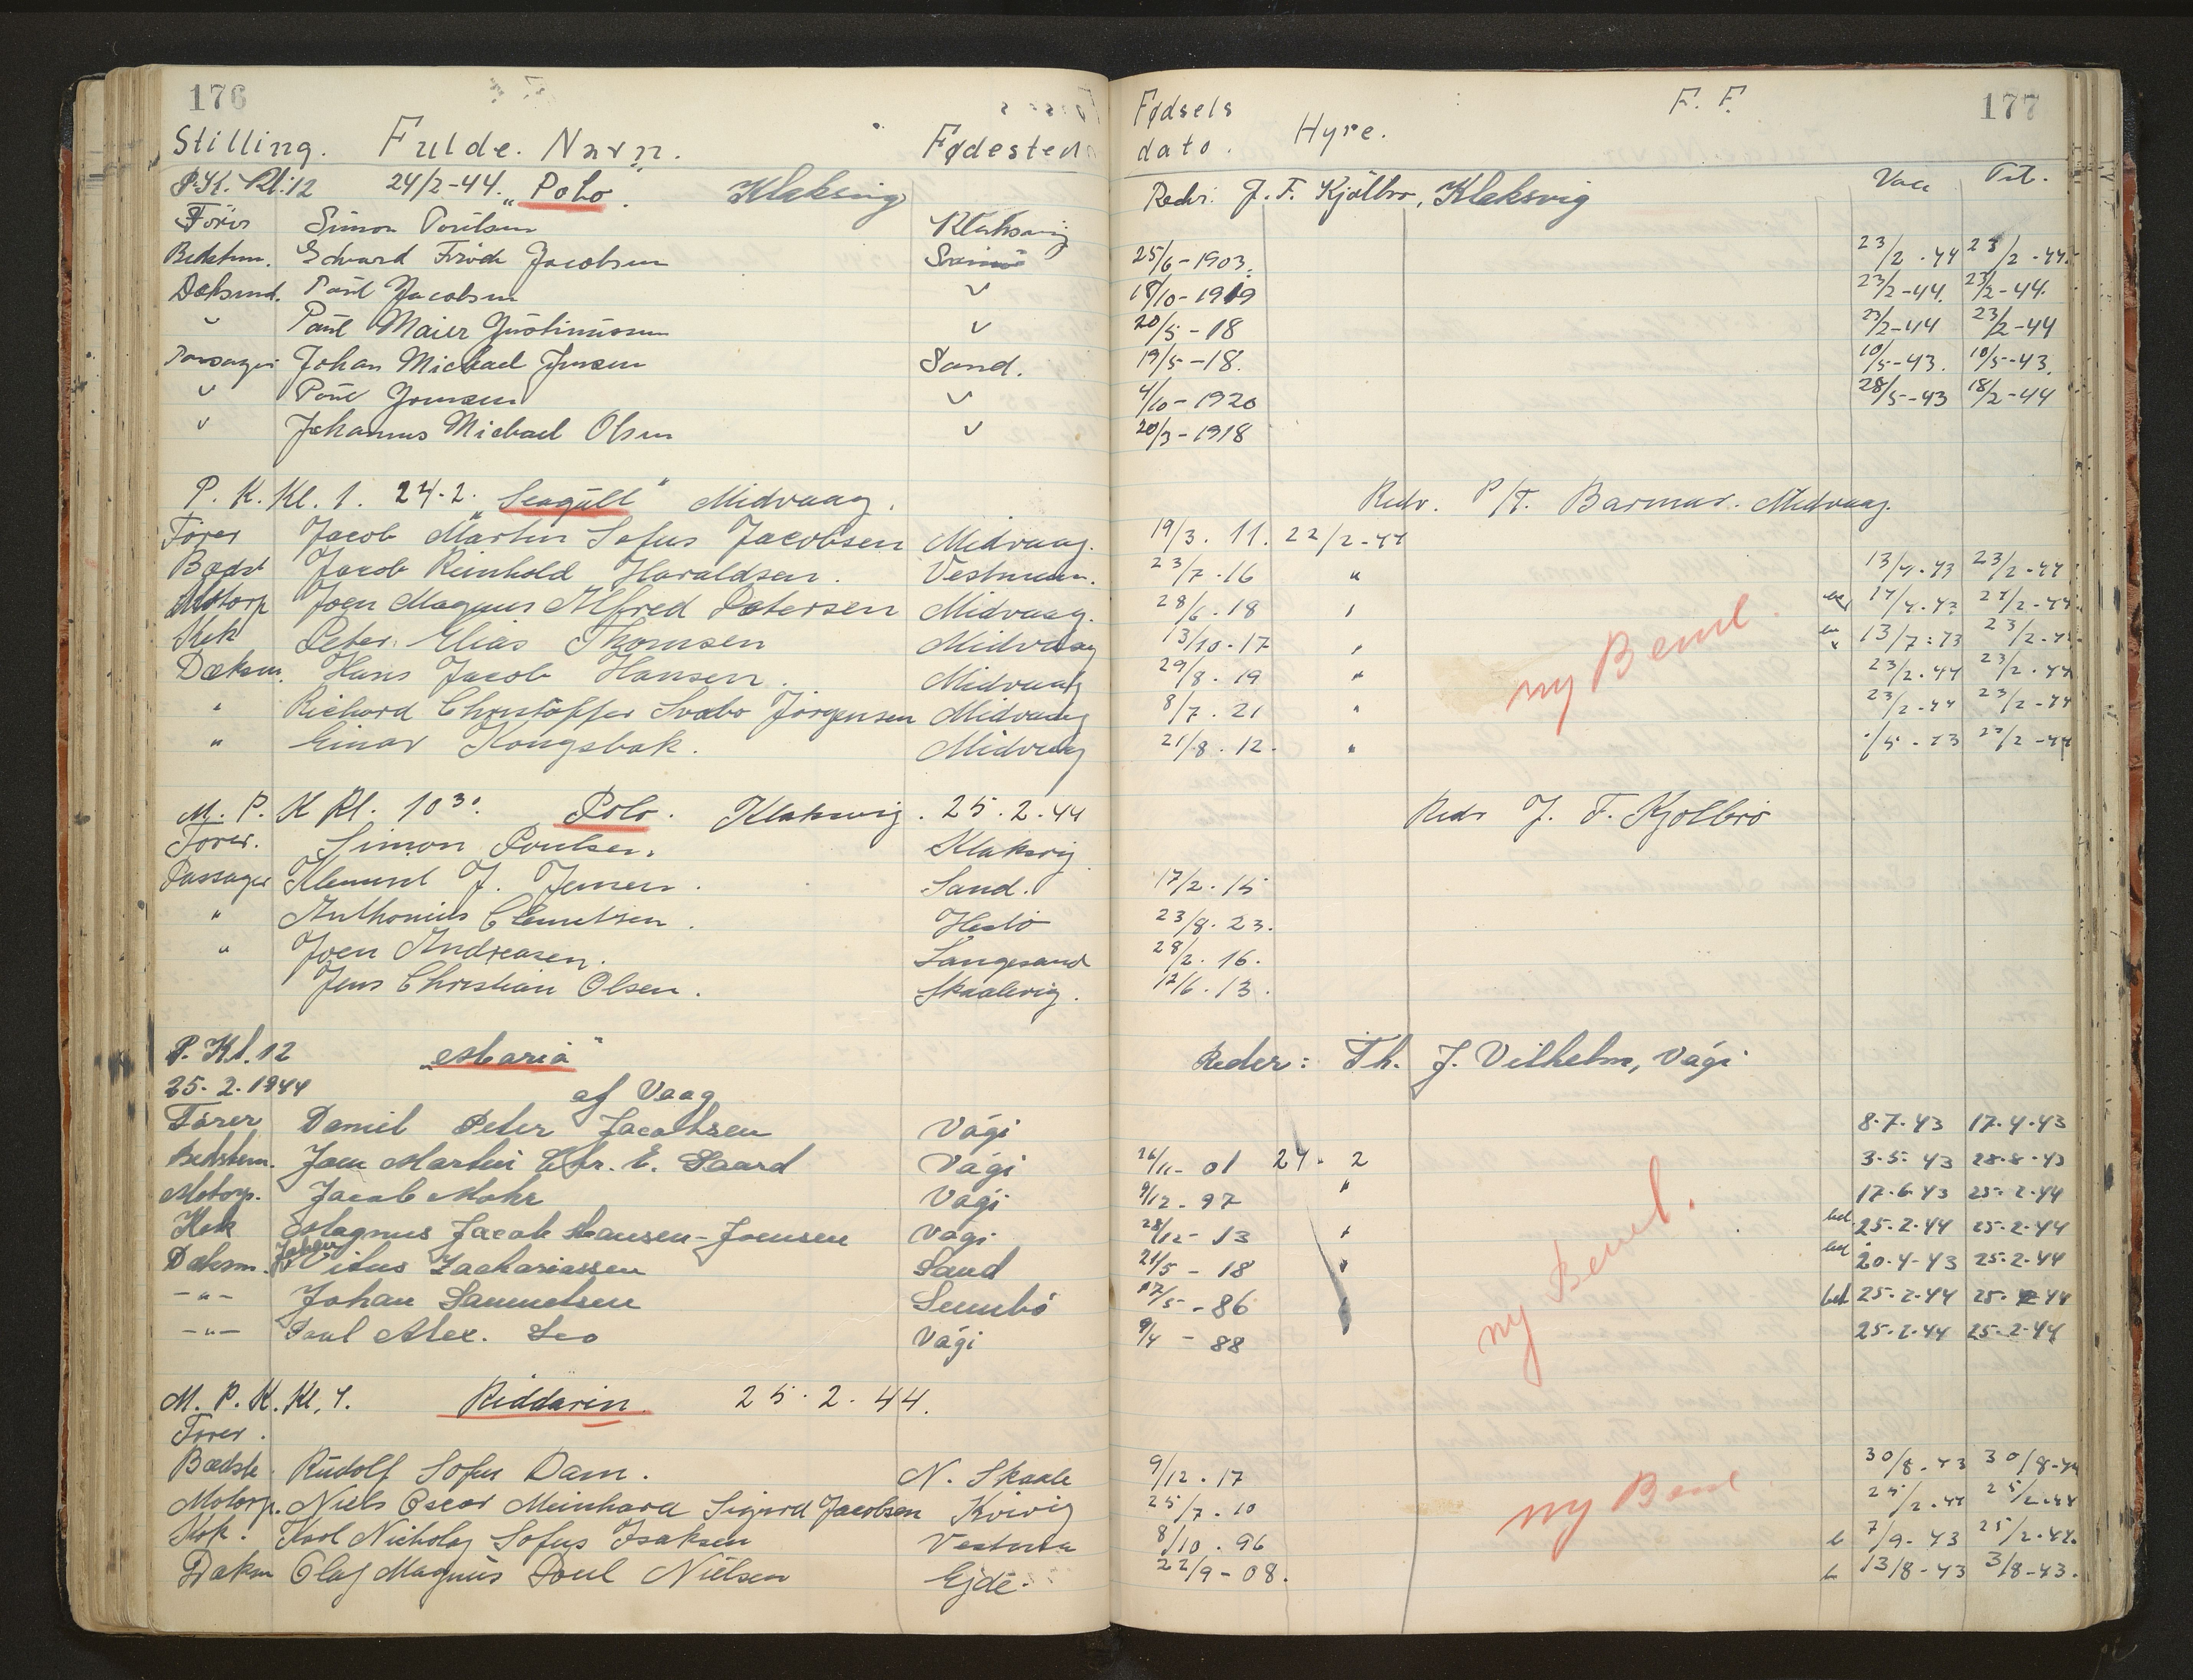 176
177
Stilling. Fulde. Navn. Fødested Fødsels dato. Hyre. F. F.
P.K. Kl: 12 24/2-44. "Polo". Klaksvig Reder: J. F. Kjölbro, Klaksvig Vac Tit.
Förer Simon Poulsen Klaksvig
Bedstm. Edvard Fróde Jacobsen 25/6-1903. 23/2-44 23/2-44.
Dæksmd. Poul Jacobsen 18/10-1919 23/2-44. 23/2-44.
Poul Maier Justinussen 20/5-18 23/2-44 23/2-44
Passager Johan Michael Jensen Sand. 19/5-18. 10/5-43. 10/5-43.
Poul Joensen 4/10-1920 28/5-43 18/2-44
Johannus Michael Olsen 20/3-1918
P. K. Kl. 1. 24.2. "Seagull" Midvaag. Redr. P/F. Midvaag.
Förer Jacob Martin Sofus Jacobsen Midvaag. 19/3. 11. 22/2-44
Bedst Jacob Reinhold Haraldsen. Vestman. 23/7.16 " 13/4-43 23/2-44
Motorp Joen Magnus Alfred Petersen Midvaag. 28/6.18
Kok Peter Elias Thomsen Midvaag 13/10-17
Dæksm. Hans Jacob Hansen. Midvaag 29/8.19 " 23/2.44 23/2.44
" Richard Christoffer Svabo Jörgensen Midvaag 8/7.21 " 23/2-44 23/2-44
" Einar Kongsbak. Midvaag 21/8.12. "
ny Beml.
M. P. K Kl. 10³⁰. Polo. Klaksvig. 25.2.44 Redr J. F. Kjolbro
Förer. Simon Poulsen. Klaksvig
Passager Klemint J. Jensen. Sand. 17/2.15
" Anthonius Clemetsen. Hestö 23/8.23.
" Joen Andreasen. Langesand 28/2.16.
Jens Christian Olsen. Skaalevig. 12/6.13.
P. Kl. 12 "Maria" Reder: Th. J. Vilhelm, Vági
25.2.1944 af Vaag
Förer Daniel Peter Jacobsen Vági 8.7.43 17.4.43
Bedstem. Joen Martin Chr. E. Vági 26/11-01 24.2 3.5.43 28.8.43
Motorp. Jacob Mohr Vági 9/12.97 " 17.6.43 25.2.44
Kok Magnus Jacob Hansen-Joensen Vági 28/12-13 " bd. 25.2.44 25.2.44
Dæksm. Vitus Zachariassen Sand 21/5-18 " bd 20.4-43 25.2.44
-"- Johan Samuelsen Sumbö 17/5-86 bd 25.2.44
-"- Poul Alex. Leo Vági 9/4-88 25.2.44 25.2.44
ny Beml.
M. P. K. Kl. 4. Riddarin. 25.2.44.
Förer.
Bedste. Rudolf Sofus Dam. N. Skaale 9/12.17 30/8-43
Motorp. Niels Oscar Meinhard Sigurd Jacobsen Kvivig 25/7.10 25/2.44 25/2.44
Kok. Karl Nicholaj Sofus Isaksen 8/10.96 b 7/9-43 25/2-44.
Dæksm Olaf Magnus Poul Nielsen Ejde. 22/9-08. b 13/8-43 3/8-43.
ny Beml